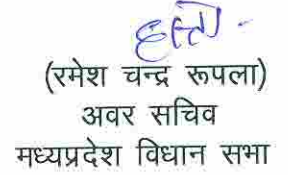 हस्ता -
(रमेश चन्द्र रूपला)
अवर सचिव
मध्यप्रदेश विधान सभा